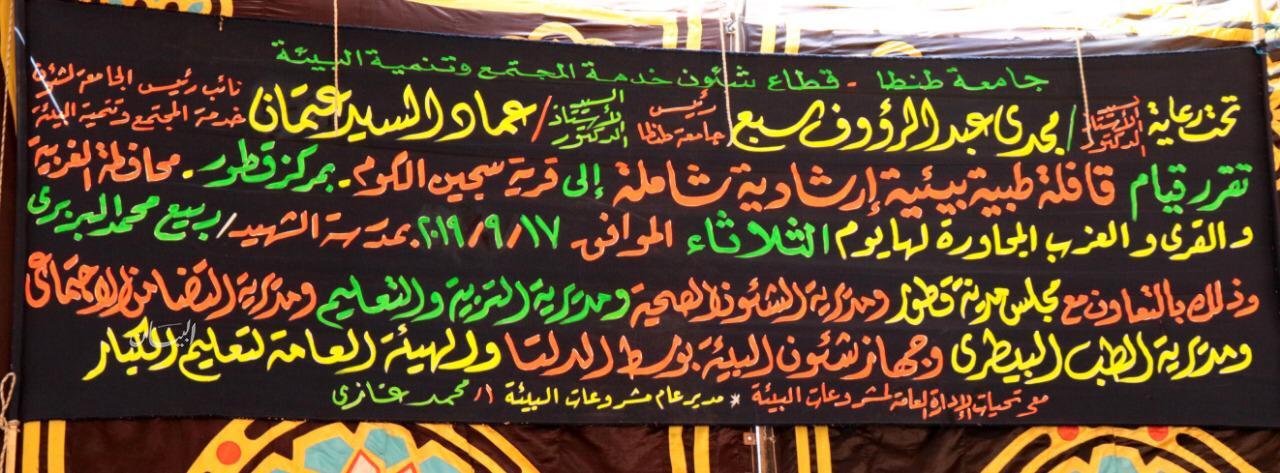 جامعة طنطا - قطاع شئون خدمة المجتمع وتنمية البيئة
تحت رعاية السيد الأستاذ الدكتور / مجدى عبد الرؤوف سبع رئيس جامعة طنطا السيد الأستاذ الدكتور / عماد السيد عتمان نائب رئيس الجامعة لشئون خدمة المجتمع وتنمية البيئة
تقرر قيام قافلة طبية بيئية إرشادية شاملة إلى قرية سجين الكوم - بمركز قطور - محافظة الغربية
والقرى والعزب المجاورة لها يوم الثلاثاء الموافق ٢٠١٩/٩/١٧ بمدرسة الشهيد / ربيع محمد البربرى
وذلك بالتعاون مع مجلس مدينة قطور ومديرية الشئون الصحية ومديرية التربية والتعليم ومديرية التضامن الاجتماعى
ومديرية الطب البيطرى وجهاز شئون البيئة بوسط الدلتا والهيئة العامة لتعليم الكبار
مع تحيات الإدارة العامة لمشروعات البيئة * مدير عام مشروعات البيئة أ/ محمد غازى
البيان